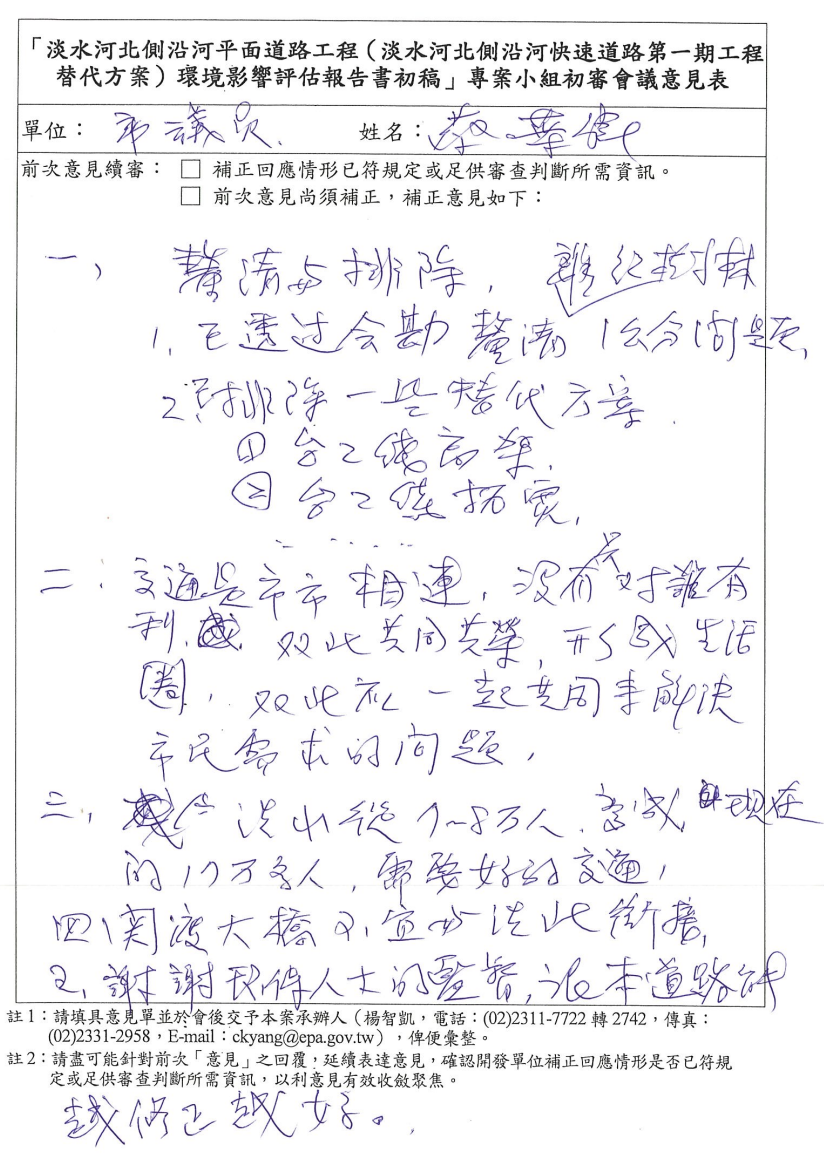 「淡水河北側沿河平面道路工程（淡水河北側沿河快速道路第一期工程
替代方案）環境影響評估報告書初稿」專案小組初審會議意見表
單位： 市議員. 姓名：蔡
前次意見續審： □ 補正回應情形已符規定或足供審查判斷所需資訊。
□ 前次意見尚須補正，補正意見如下：
一、釐清与排除，離紅樹林
1. 已透过会勘釐清 问題,
2. 排除一些替代方案.
① 台2线高架.
② 台2线拓寬.
二. 交通是市市相連, 没有只对誰有
利, 双北共同共榮, 形成生活
圈, 双北 一起共同來解決
市民需求的问題,
三, 淡水從7~8万人, 現在
的17万多人, 需要好的交通,
四、関渡大橋 淡北銜接,
五, 謝謝环保人士的監督, 讓本道路能
註1：請填具意見單並於會後交予本案承辦人（楊智凱，電話：(02)2311-7722 轉 2742，傳真：
(02)2331-2958，E-mail：ckyang@epa.gov.tw），俾便彙整。
註2：請盡可能針對前次「意見」之回覆，延續表達意見，確認開發單位補正回應情形是否已符規
定或足供審查判斷所需資訊，以利意見有效收斂聚焦。
越修正越好。